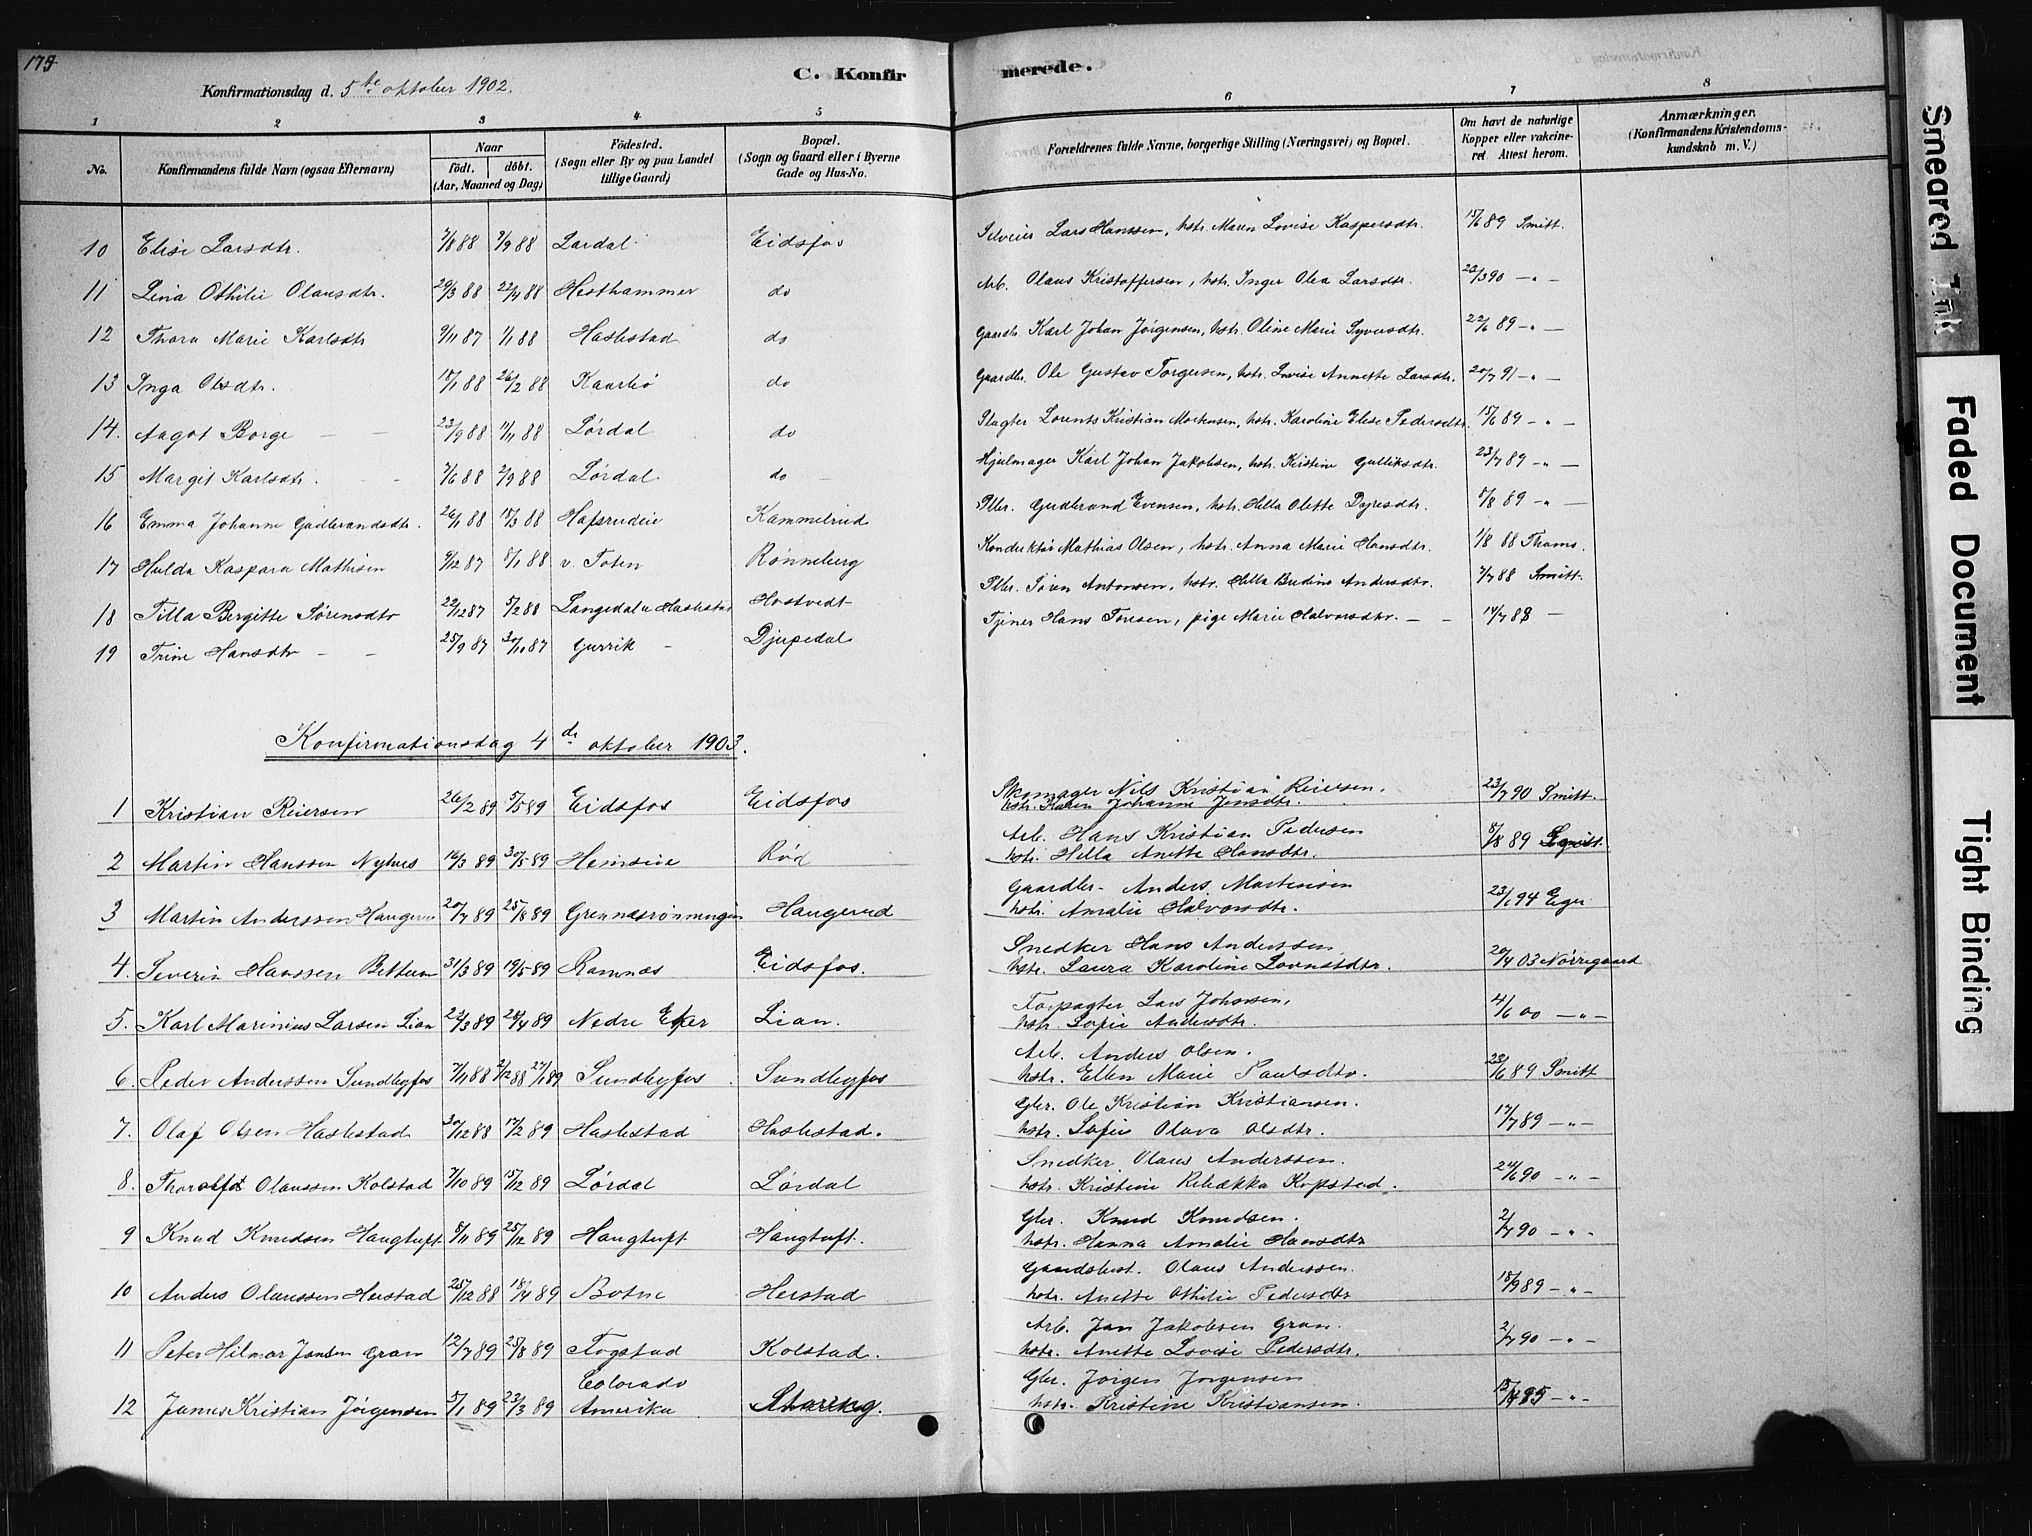 175
C. Konfirmerede.
Konfirmationsdag d. 5te oktober 1902.
1 2 3 4 5 6 7 8
No. Konfirmandens fulde Navn (ogsaa Efternavn) Naar födt. döbt. (Aar, Maaned og Dag) Födested. (Sogn eller By og paa Landet tillige Gaard) Bopæl. (Sogn og Gaard eller i Byerne Gade og Hus-No. Forældrenes fulde Navne, borgerlige Stilling (Næringsvei) og Bopæl. Om havt de naturlige Kopper eller vakcineret Attest herom. Anmærkninger. (Konfirmandens Kristendomskundskab m. V.)
10 Elise Larsdtr. 7/8 88 9/9 88 Lardal Eidsfos Lars Hanssen, hstr. Maren Lovise Kaspersdtr. 15/6 89 Smitt.
11 Lina Othilie Olausdtr. 29/3 88 22/4 88 Hesthammer do Arb. Olaus Kristoffersen, hstr. Inger Olea Larsdtr. 23/3 90 — „ —
12 Thora Marie Karlsdtr 9/11 87 1/1 88 Haslestad do Gaardbr. Karl Johan Jørgensen, hstr. Oline Marie Syversdtr. 22/6 89 — „ —
13 Inga Olsdtr. 18/1 88 26/2 88 do Gaardbr. Ole Gustav Torgersen, hstr. Lovise Annette Larsdtr. 20/7 91 — „ —
14. Aagot Borge — — 23/9 88 11/11 88 Lørdal do Slagter Lorents Kristian Mortensen, hstr. Karoline Elise Pedersdtr. 15/6 89 — „ —
15 Margit Karlsdtr. 7/6 88 2/9 88 Lørdal do — Hjulmager Karl Johan Jakobsen, hstr. Kristine Gulliksdtr. 23/7 89 — „ —
16 Emma Johanne Gudbrandsdtr. 26/1 88 18/3 88 Kammelrud Gudbrand Evensen, hstr. Hella Olette Dyresdtr. 8/8 89 — „ —
17 Hulda Kaspara Mathisen 9/12 87 8/1 88 v. Toten Rønneberg Konduktør Mathias Olsen, hstr. Anna Marie Hansdtr. 1/8 88 Thams.
18 Tilla Bergitte Sørensdtr 22/12 87 5/2 88 Hostvedt Søren Antonsen, hstr. Hella Bredine Andersdtr. 7/7 88 Smitt.
19 Trine Hansdtr — — 25/9 87 30/10 87 Gurrik — Djupedal Tjener Hans Toresen, pige Marie Halvorsdtr. — — 14/7 88 —
Konfirmationsdag 4de oktober 1903.
1 Kristian Reiersen 26/2 89 5/5 89 Eidsfos Eidsfos Skomager Nils Kristian Reiersen. 23/7 90 Smitt.
hstr. Karen Johanne Jensdtr.
2 Martin Hanssen Nyhus 14/3 89 30/5 89 Heimseie Rød Arb. Hans Kristian Pedersen 8/8 89 Smitt.
hstr. Hella Anette Hansdtr.
3 Martin Anderssen Haugerud 20/7 89 25/8 89 Grennesrønningen Haugerud Gaardbr. Anders Martinsen 23/1 94 Eger
hstr. Amalie Halvorsdtr.
4. Severin Hanssen Bettum 31/3 89 19/5 89 Ramnæs Eidsfos. Snedker Hans Anderssen 20/4 03 Nørregaard
hstr. Laura Karoline
5. Karl Marinius Larsen Lian 22/3 89 28/4 89 Nedre Eker Lian. Forpagter Lars Johnsen, 4/6 00 — „ —
hstr. Sofie Andersdtr.
6. Peder Anderssen Sundbyfos 7/11 88 2/12 88 27/1 89 Sundbyfos Sundbyfos Arb. Anders Olsen. 23/6 89 Smitt
hstr. Ellen Marie Paulsdtr.
7. Olaf Olsen Haslestad 30/12 88 17/2 89 Haslestad Haslestad. Gbr. Ole Kristian Kristiansen. 17/7 89 — „ —
hstr. Sofie Olava Olsdtr.
8. Thorolf Olaussen Kolstad 7/10 89 15/12 89 Lørdal Lørdal Snedker Olaus Anderssen. 24/6 90 — „ —
hstr. Kristine Rebekka Kopstad.
9 Knud Knudsen Haugtuft 8/11 89 25/12 89 Haugtuft Haugtuft. Gbr. Knud Knudsen. 2/7 90 — „ —
hstr. Hanna Amalie Hansdtr
10 Anders Olaussen Herstad 25/12 88 18/4 89 Botne Herstad Olaus Anderssen. 18/9 89 — „ —
hstr. Anette Othilie Pedersdtr
11 Peter Hilmar Jansen Gran 12/7 89 25/8 89 Fogstad Kolstad. Arb. Jan Jakobsen Gran. 2/7 90 — „ —
hstr. Anette Lovise Pedersdtr.
12 James Kristian Jørgensen 5/1 89 23/3 89 Colorado Amerika Gbr. Jørgen Jørgensen — „ —
hstr. Kristine Kristiansen.
Smeared Ink
Faded Document
Tight Binding